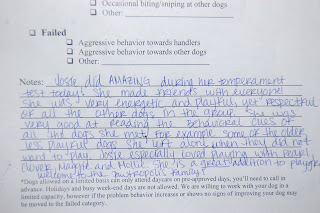 ☐ Occasional biting/sniping at other dogs
☐ Other:
☐ Failed
☐ Aggressive behavior towards handlers
☐ Aggressive behavior towards other dogs
☐ Other:
Notes: Josie did AMAZING during her temperament
test today! She made friends with everyone!
She was very energetic and playful, yet respectful
of all the other dogs in the group. She was
very good at reading the behavioral cues of
all the dogs she met, for example some of the older
less playful dogs she left alone when they did not
want to play. Josie especially loved playing with Pearl,
Clover, and Mollie. She is a great addition to playgroup
Welcome to the Muttropolis Family!
*Dogs allowed on a limited basis can only attend daycare on pre-approved days, you'll need to call in
advance. Holidays and busy week-end days are not allowed. We are willing to work with your dog in a
limited capacity, however if the problem behavior increases or shows no signs of improving your dog may
be moved to the failed category.